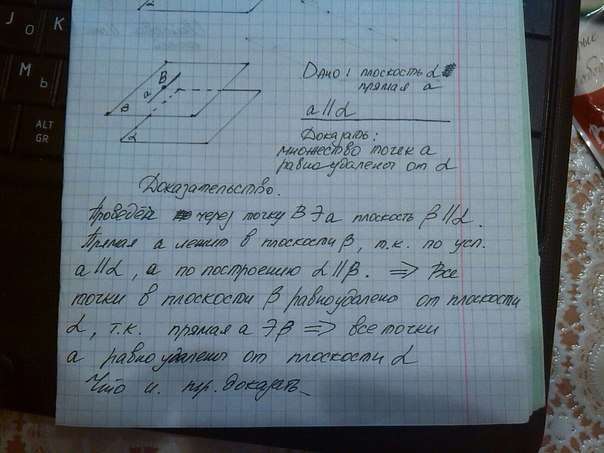 J
O
K
М
Ь
ALT
GR
α
Дано: плоскость α
прямая a
a ∥ α
Доказать:
множество точек a
равноудалены от α
B
a
β
α
Доказательство.
Проведём через точку B ∋ a плоскость β ∥ α.
Прямая a лежит в плоскости β, т.к. по усл.
a ∥ α, а по построению α ∥ β. ⇒ Все
точки в плоскости β равноудалено от плоскости
α, т.к. прямая a ∋ β ⇒ все точки
a равноудалены от плоскости α
Что и. тр. доказать